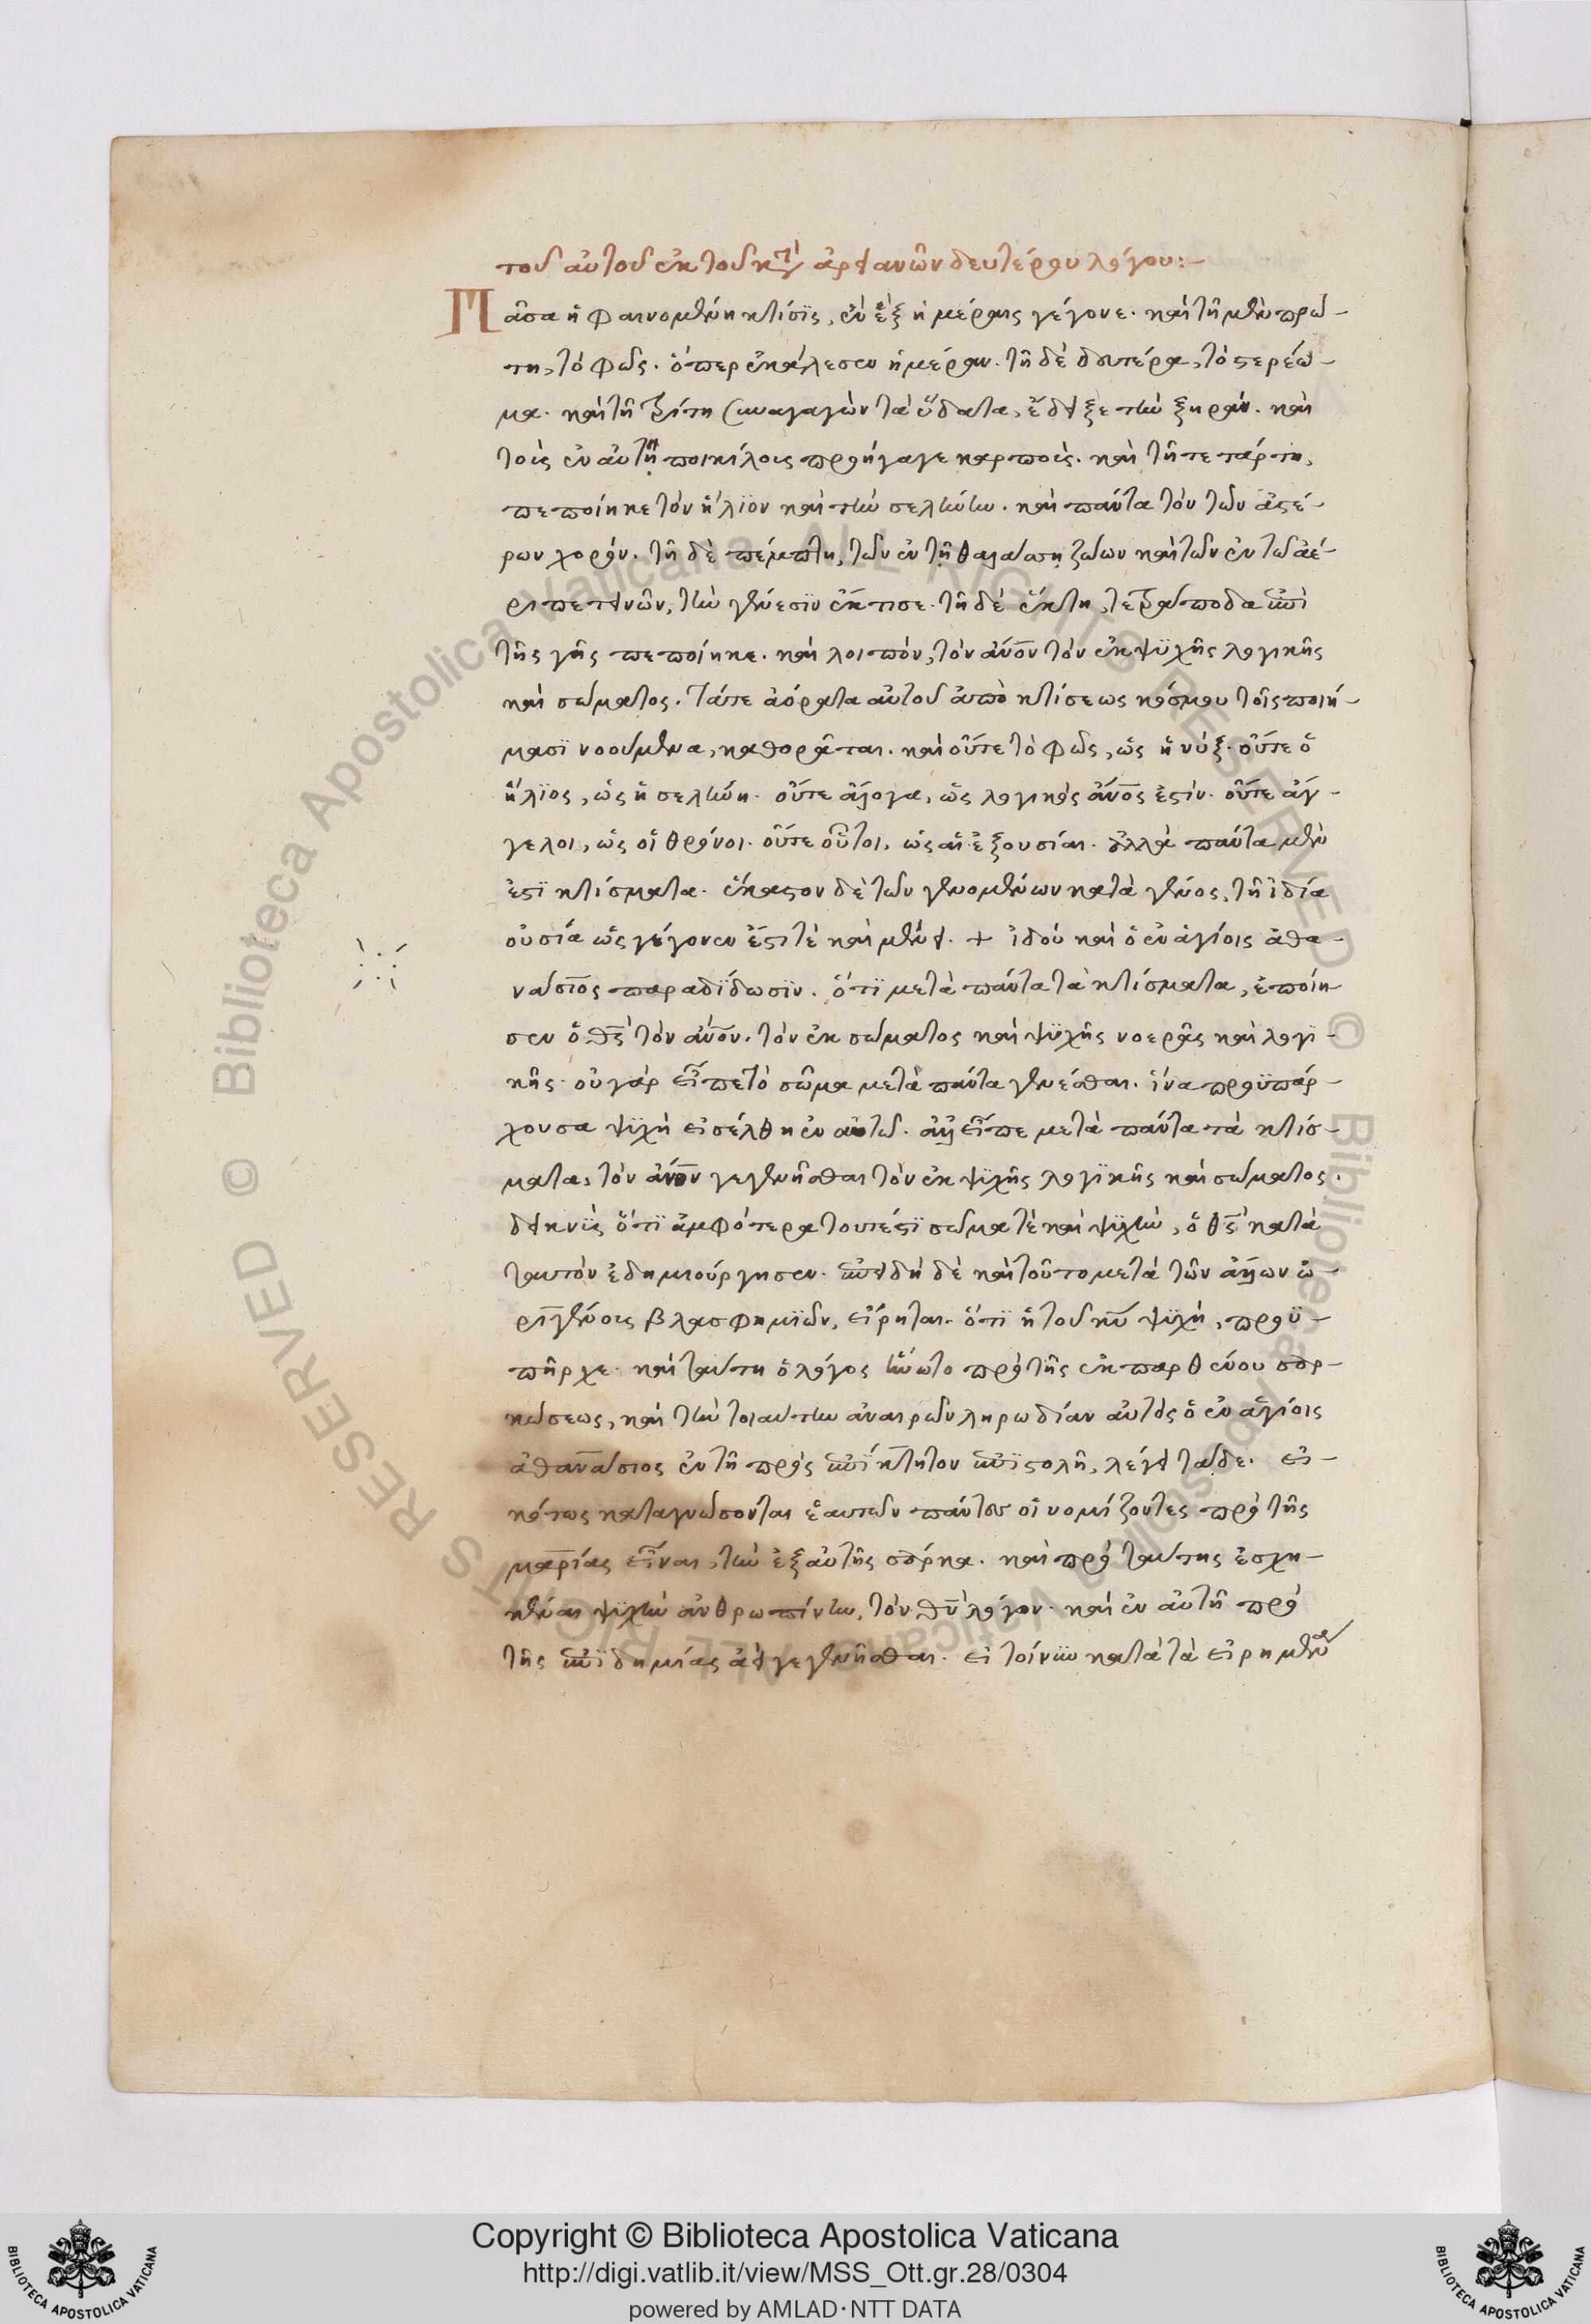 τοῦ αὐτοῦ ἐκ τοῦ κατὰ ἀρειανῶν δευτέρου λόγου:–
Πᾶσα ἡ φαινομένη κτίσϊς, ἐν ἓξ ἡμέραις γέγονε. καὶ τῇ μὲν πρώ–
τη, τὸ φῶς. ὅπερ ἐκάλεσεν ἡμέραν. τῇ δὲ δευτέρα, τὸ στερέω–
μα. καὶ τῇ τρίτη συναγαγὼν τὰ ὕδατα, ἔδειξε τὴν ξηράν. καὶ
τοὺς ἐν αὐτῇ ποικίλους προήγαγε καρποὺς. καὶ τῇ τετάρτη,
πεποίηκε τὸν ἥλϊον καὶ τὴν σελήνην. καὶ πάντα τὸν τῶν ἀστέ–
ρων χορόν. τῇ δὲ πέμπτη, τῶν ἐν τῇ θαλάσση ζώων καὶ τῶν ἐν τῶ ἀέ–
ρι πετεινῶν, τὴν γένεσϊν ἔκτισε. τῇ δὲ ἕκτη, τετράποδα ἐπὶ
τῆς γῆς πεποίηκε. καὶ λοιπὸν, τὸν ἄνον τὸν ἐκ ψϋχῆς λογικῆς
καὶ σώματος. τά τε ἀόρατα αὐτοῦ ἀπὸ κτίσεως κόσμου τοῖς ποιή–
μασϊ νοούμενα, καθορᾶται. καὶ οὔτε τὸ φῶς, ὡς ἡ νύξ. οὔτε ὁ
ἥλϊος, ὡς ἡ σελήνη. οὔτε ἄλογα, ὡς λογικὸς ἄνος ἐστίν. οὔτε ἄγ–
γελοι, ὡς οἱ θρόνοι. οὔτε οὗτοι, ὡς αἱ ἐξουσίαι. ἀλλὰ πάντα μὲν
ἐστϊ κτίσματα. ἕκαστον δὲ τῶν γενομένων κατὰ γένος, τῇ ἰδία
οὐσία ὡς γέγονεν ἔστι τὲ καὶ μένει. + ἰδοὺ καὶ ὁ ἐν ἁγίοις ἀθα–
νάσϊος παραδίδωσϊν. ὅτϊ μετὰ πάντα τὰ κτίσματα, ἐποίη–
σεν ὁ θς τὸν ἄνον. τὸν ἐκ σώματος καὶ ψϋχῆς νοερᾶς καὶ λογϊ–
κῆς. οὐ γὰρ εἶπε τὸ σῶμα μετὰ πάντα γενέσθαι. ἵνα προϋπάρ–
χουσα ψϋχὴ εἰσέλθη ἐν αὐτῶ. ἀλλ' εἶπε μετὰ πάντα τὰ κτίσ–
ματα, τὸν ἄνον γεγενῆσθαι τὸν ἐκ ψϋχῆς λογϊκῆς καὶ σώματος.
δεικνὺς ὅτϊ ἀμφότερα τουτέστϊ σῶμα τὲ καὶ ψϋχὴν, ὁ θς κατὰ
ταυτὸν ἐδημιούργησεν. ἐπειδὴ δὲ καὶ τοῦτο μετὰ τῶν ἄλλων ὠ–
ριγένους βλασφημϊῶν, εἴρηται. ὅτϊ ἡ τοῦ κυ ψϋχὴ, προϋ–
πῆρχε. καὶ ταύτη ὁ λόγος ἥνωτο πρὸ τῆς ἐκ παρθένου σαρ–
κώσεως, καὶ τὴν τοιαύτην ἀναιρῶν ληρωδίαν αὐτὸς ὁ ἐν ἁγίοις
ἀθανάσιος ἐν τῇ πρὸς ἐπίκτητον ἐπϊστολῇ, λέγει τάδε. εἰ–
κότως καταγνώσονται ἑαυτῶν πάντες οἱ νομίζοντες πρὸ τῆς
μαρίας εἶναι, τὴν ἐξ αὐτῆς σάρκα. καὶ πρὸ ταύτης ἐσχη–
κέναι ψϋχὴν ἀνθρωπίνην, τὸν θυ λόγον. καὶ ἐν αὐτῇ πρὸ
τῆς ἐπϊδημίας ἀεὶ γεγενῆσθαι. εἰ τοίνυν κατὰ τὰ εἰρημένα
Copyright © Biblioteca Apostolica Vaticana
http://digi.vatlib.it/view/MSS_Ott.gr.28/0304
powered by AMLAD·NTT DATA
BIBLIOTECA APOSTOLICA VATICANA
BIBLIOTECA APOSTOLICA VATICANA
© Biblioteca Apostolica Vaticana ALL RIGHTS RESERVED © Biblioteca Apostolica Vaticana ALL RIGHTS RESERVED